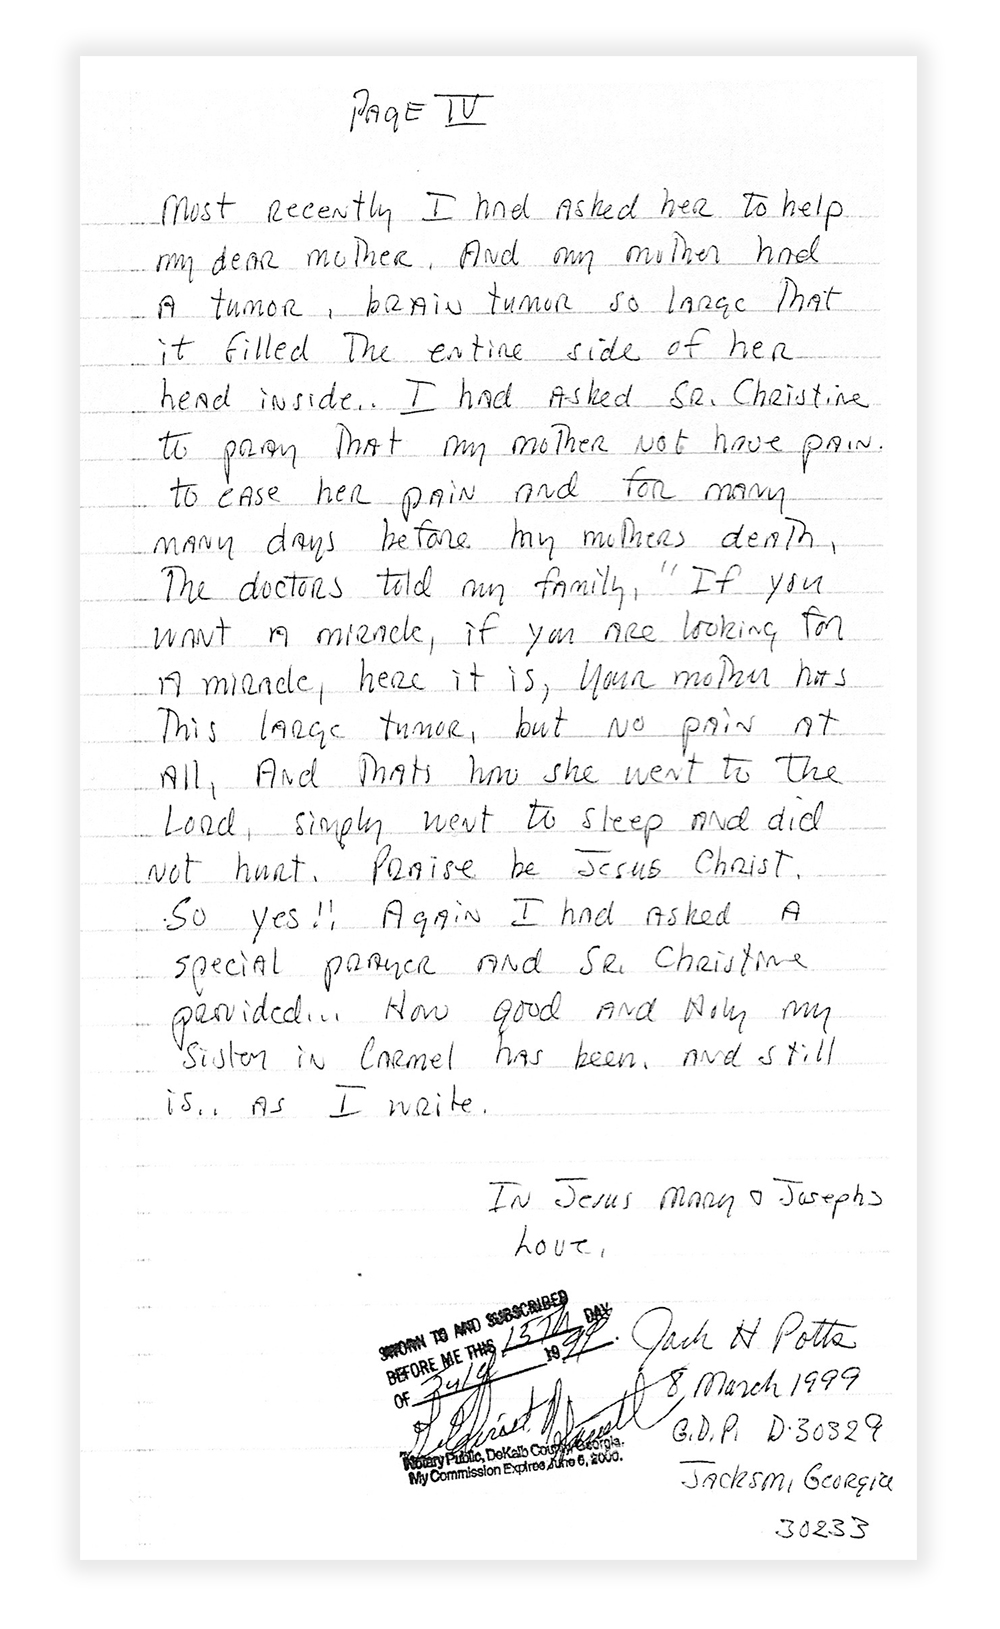 PAGE IV
Most recently I had asked her to help
my dear mother. And my mother had
A tumor, brain tumor so large That
it filled The entire side of her
head inside.. I had asked Sr. Christine
to pray That my mother not have pain.
to ease her pain and for many
many days before my mothers death,
The doctors told my family, "If you
want a miracle, if you are looking for
A miracle, here it is, Your mother has
This large tumor, but no pain at
all, And Thats how she went to The
Lord, simply went to sleep and did
not hurt. Praise be Jesus Christ.
So yes!! Again I had asked A
special prayer and Sr. Christine
provided... How good and Holy my
Sister in Carmel has been. and still
is.. as I write.
In Jesus Mary & Josephs
Love,
SWORN TO AND SUBSCRIBED
BEFORE ME THIS 15Th DAY
OF July 1999.
Notary Public, DeKalb County, Georgia.
My Commission Expires June 6, 2000.
Jack H Potts
8 March 1999
G.D.P. D-30329
Jackson, Georgia
30233